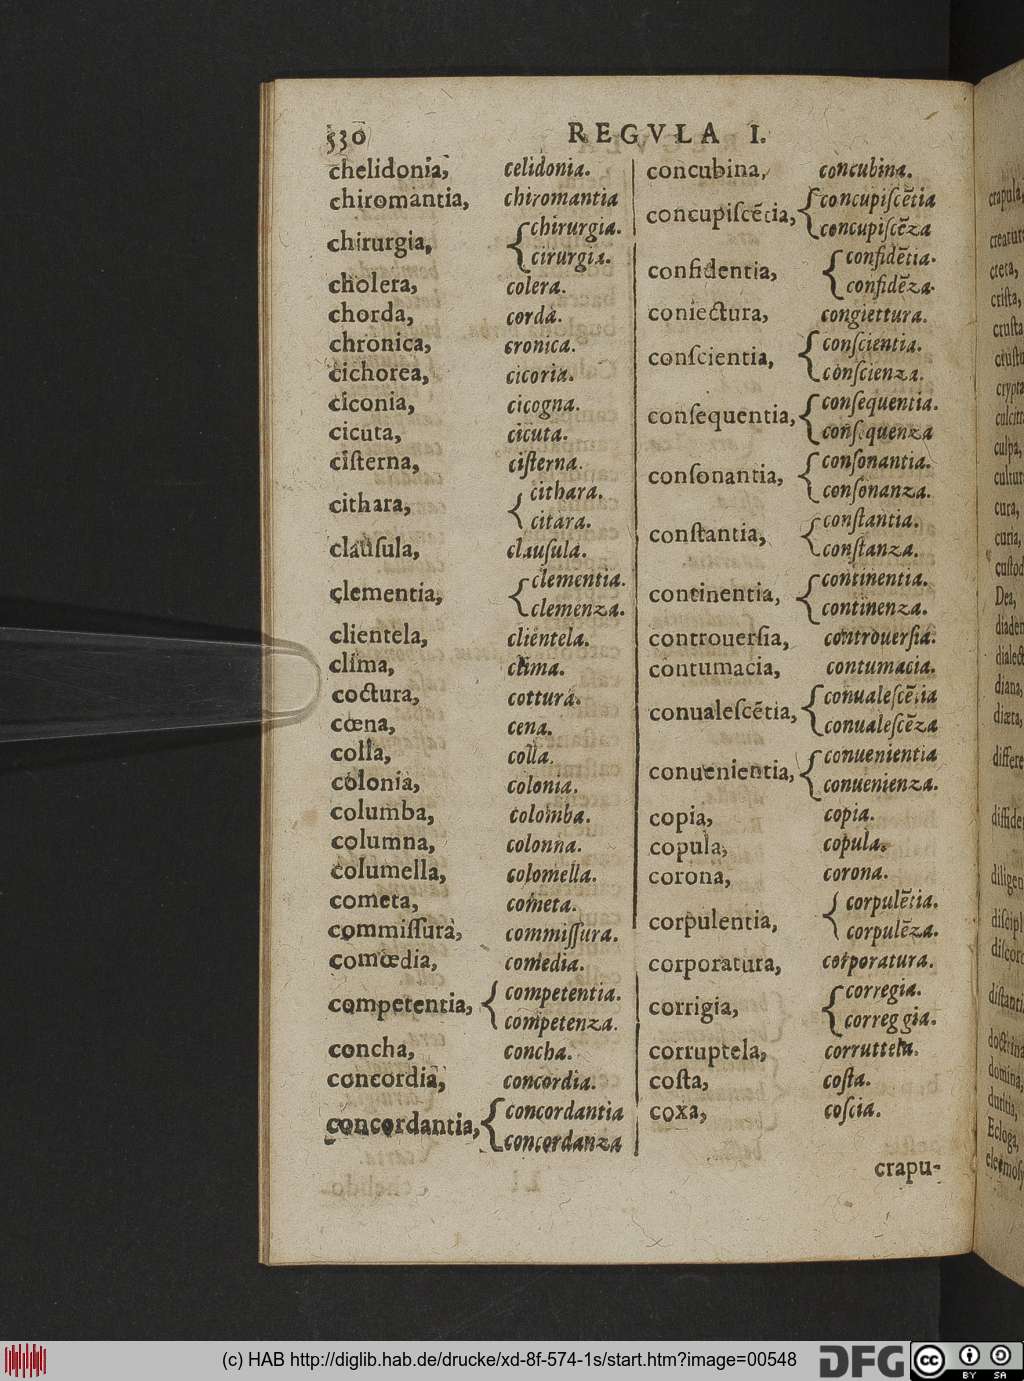 530 REGVLA I.
chelidonia, celidonia.
chiromantia, chiromantia
chirurgia, { chirurgia.
cirurgia.
cholera, colera.
chorda, corda.
chronica, cronica.
cichorea, cicoria.
ciconia, cicogna.
cicuta, cicuta.
ciſterna, ciſterna.
cithara, { cithara.
citara.
clauſula, clauſula.
clementia, { clementia.
clemenza.
clientela, clientela.
clima, clima.
coctura, cottura.
cœna, cena.
colla, colla.
colonia, colonia.
columba, colomba.
columna, colonna.
columella, colomella.
cometa, cometa.
commiſſura, commiſſura.
comœdia, comedia.
competentia, { competentia.
competenza.
concha, concha.
concordia, concordia.
concordantia, { concordantia
concordanza
concubina, concubina.
concupiſcẽtia, { concupiſcẽtia
concupiſcẽza
confidentia, { confidẽtia.
confidẽza.
coniectura, congiettura.
conſcientia, { conſcientia.
conſcienza.
conſequentia, { conſequentia.
conſequenza
conſonantia, { conſonantia.
conſonanza.
conſtantia, { conſtantia.
conſtanza.
continentia, { continentia.
continenza.
controuerſia, controuerſia.
contumacia, contumacia.
conualeſcẽtia, { conualeſcẽtia
conualeſcẽza
conuenientia, { conuenientia
conuenienza.
copia, copia.
copula, copula.
corona, corona.
corpulentia, { corpulẽtia.
corpulẽza.
corporatura, corporatura.
corrigia, { corregia.
correggia.
corruptela, corruttela.
coſta, coſta.
coxa, coſcia.
crapu-
crapula,
creta,
criſta,
culpa,
cura,
curia,
Dea,
diana,
diæta,
domina,
Ecloga,
(c) HAB http://diglib.hab.de/drucke/xd-8f-574-1s/start.htm?image=00548
DFG
cc BY SA